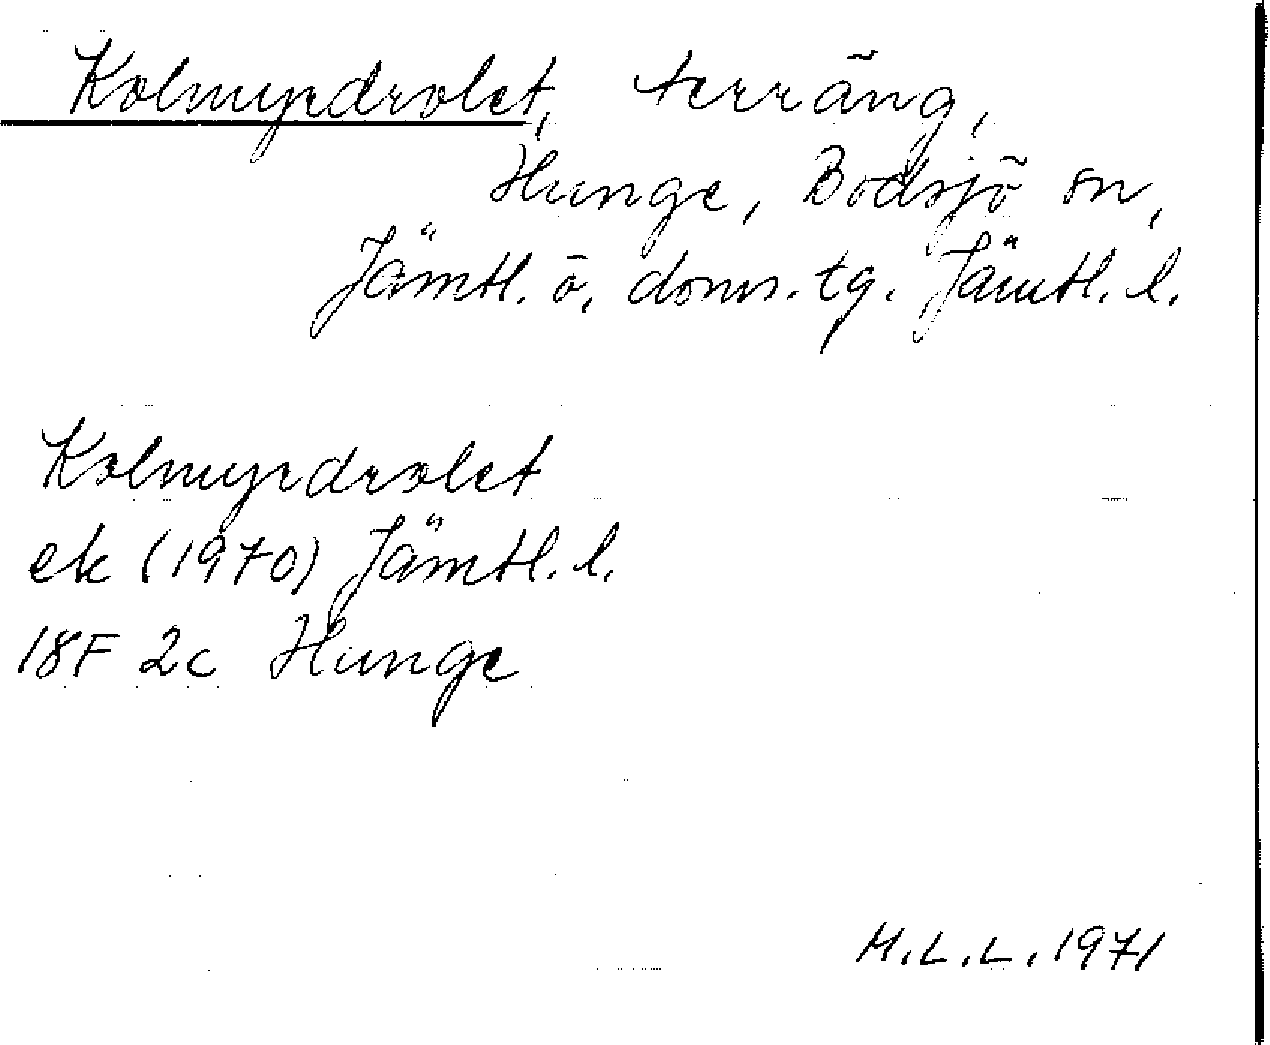 Kolmyrdrolet, terräng,
Hunge, Bodsjö sn,
Jämtl. ö. doms. tg. Jämtl. l.
Kolmyrdrolet
ek (1970) Jämtl. l.
18F 2c Hunge
M.L.L. 1971